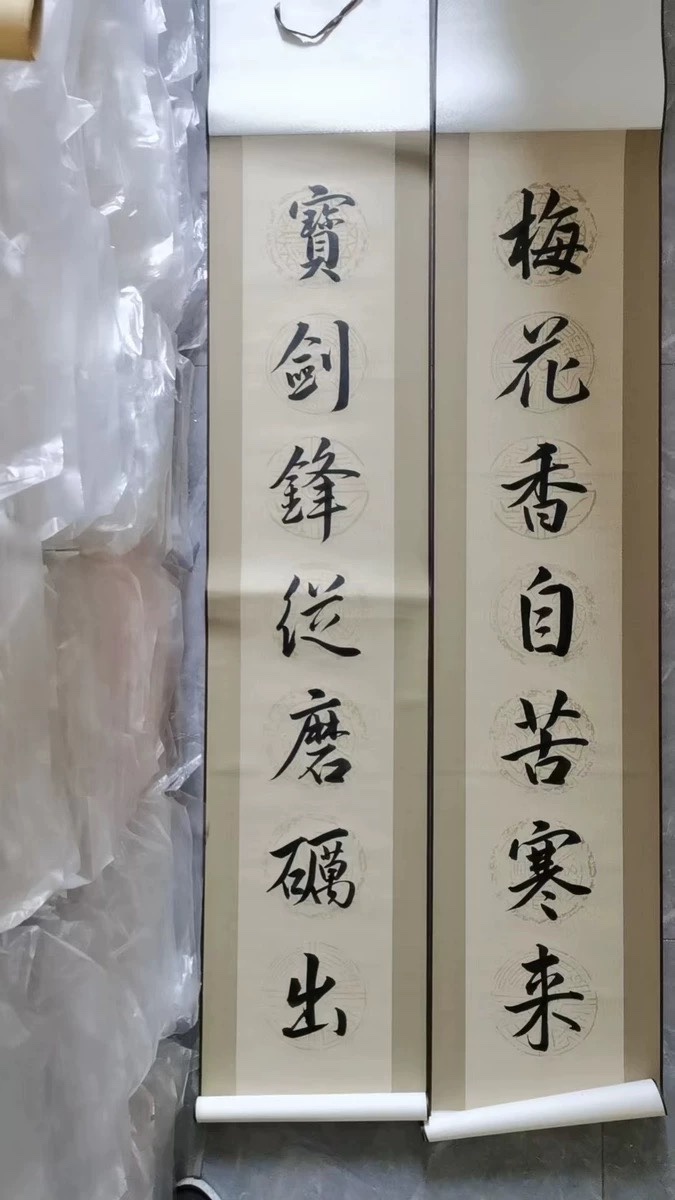 梅花香自苦寒来
寶劍鋒從磨礪出